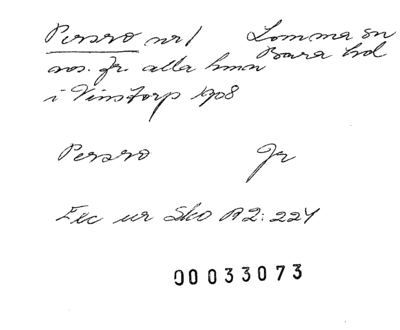 Persro nr 1 Lomma sn
Bara hd
nos. Jr. alla hmn
i Vinstorp 1908
Persro Jr
Exc ur Sko A2:224
00033073